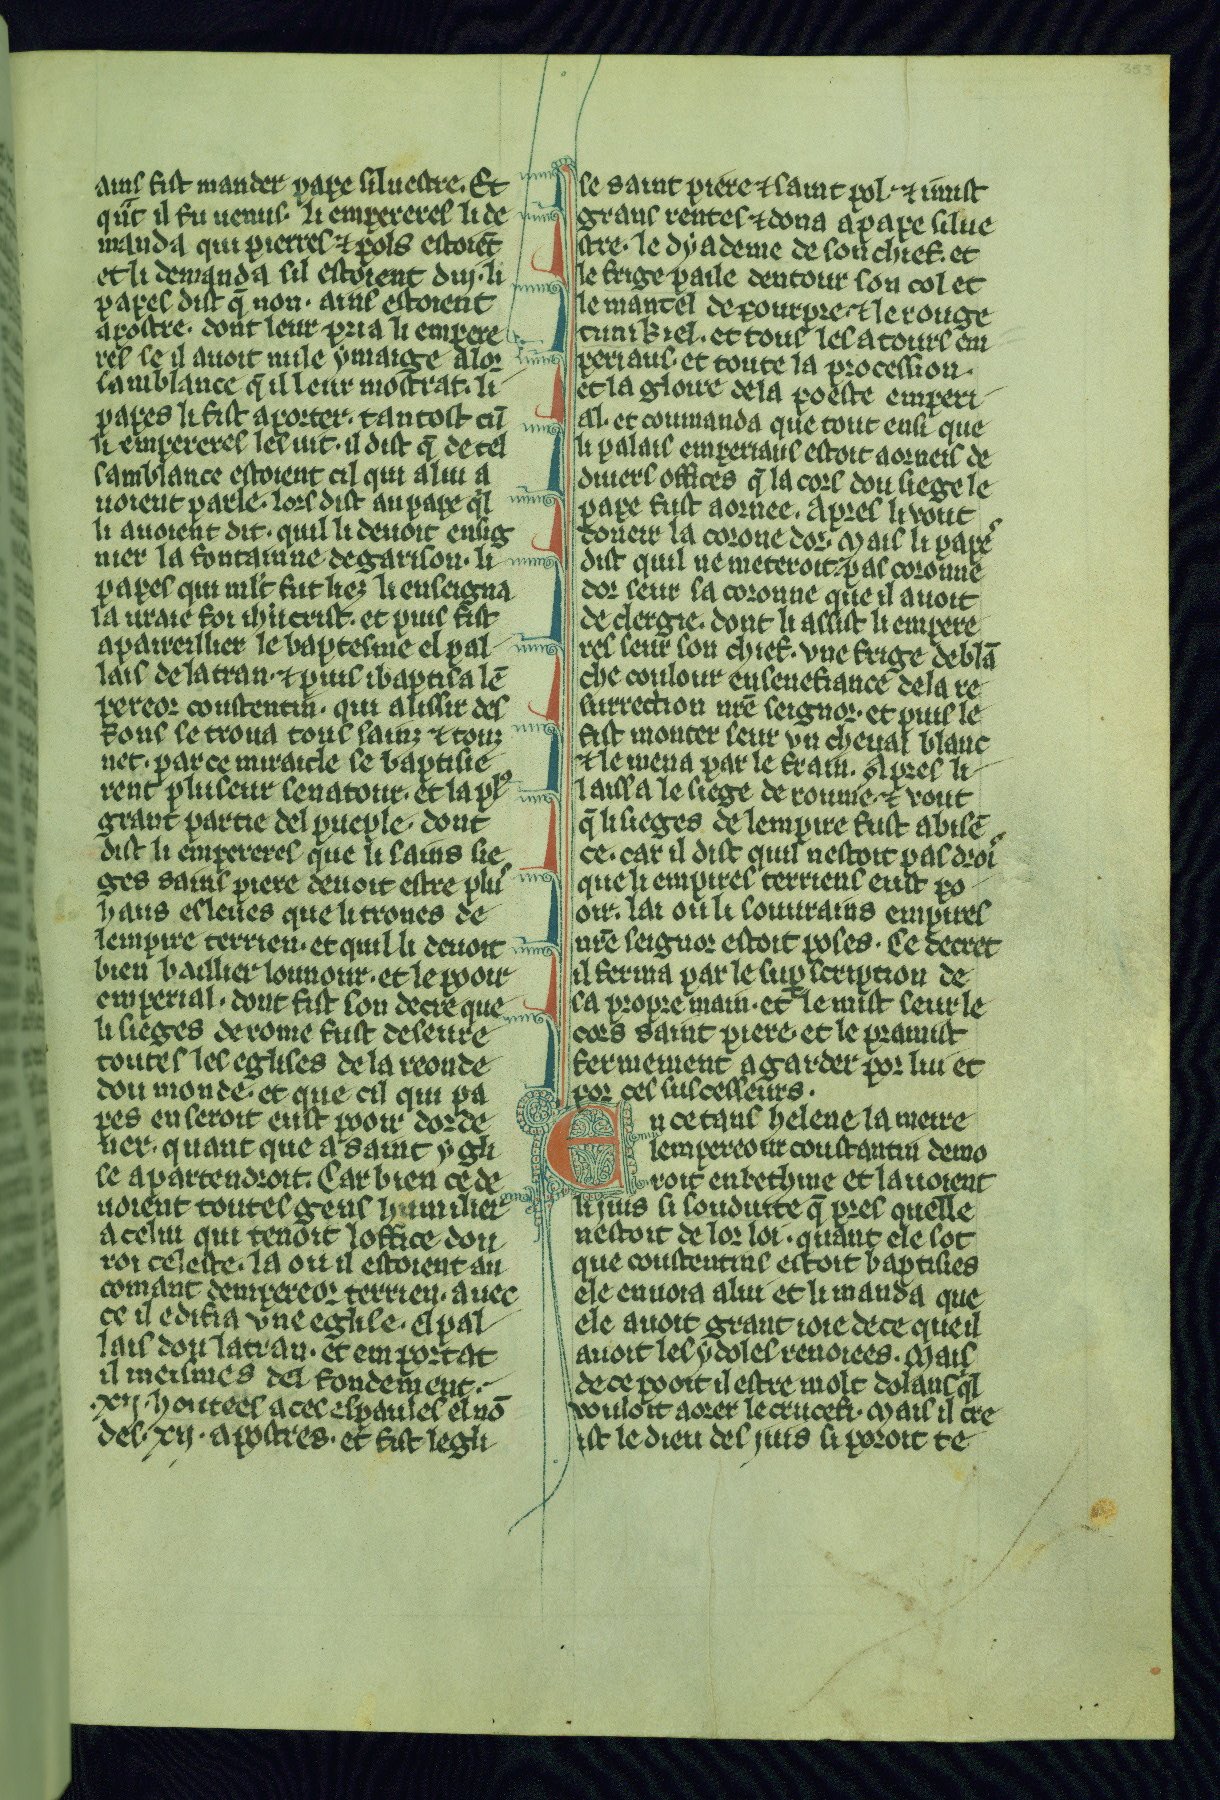 353
ains fist mander pape siluestre. Et
qͣnt il fu uenus. li empereres li de
manda qui pierres ⁊ pols estoiēt
et li demanda sil estoient dui. li
papes dist q̄ non. ains estoient
apostre. dont leur pria li empere
res se il auoit nule ymaige a lor
samblance q̄ il leur mostrat. li
papes li fist aporter. tantost cū
li empereres les uit. il dist q̄ de tel
samblance estoient cil qui a lui a
uoient parle. lors dist au pape q̄l
li auoient dit. quil li deuoit ensig
nier la fontainne de garison. li
papes qui ml't fut liez li enseigna
la uraie foi ihu crist. et puis fist
apareillier le baptesme el pal
lais de latran. ⁊ puis i baptisa lē
pereor constentin. qui a lissir des
fons se troua tous sainz ⁊ touz
net. par ce miracle se baptisie
rent pluseur senatour. et la pl9
grant partie del pueple. dont
dist li empereres que li sains sie
ges sains piere deuoit estre plus
haus esleues que li trones de
lempire terrien. et quil li deuoit
bien baillier lonnour. et le pooir
emperial. dont fist son decre que
li sieges de rome fust deseure
toutes les eglises de la reonde
dou monde. et que cil qui pa
pes en seroit eust pooir dorde
ner. quant que a saint ygli
se apartendroit. Car bien ce de
uoient toutes gens humilier
a celui qui tenoit loffice dou
roi celeste. la ou il estoient au
comant dempereor terrien. auec
ce il edifia vne eglise. el pal
lais dou latran. et en portat
il meismes del fondement.
.xij. honteès a ces espaules el nō
des .xij. apostres. et fist legli
se saint piere ⁊ saint pol. ⁊ i mist
grans rentes ⁊ dona a pape silue
stre. le dyademe de son chief. et
le frige paile dentour son col et
le mantel de pourpre. ⁊ le rouge
tunikiel. et tous les atours em
periaus. et toute la procession.
et la gloire de la poeste emperi
al. et coumanda que tout ensi que
li palais emperiaus estoit aorneis de
diuers offices q̄ la cors dou siege le
pape fust aornee. Apres li vout
doneir la corone dor. Mais li pape
dist quil ne meteroit pas coronne
dor seur sa coronne que il auoit
de clergie. dont li assist li empere
res seur son chief. vne frige de blā
che coulour en senefiance de la re
surrection nr̄e seignor. et puis le
fist monter seur vn cheual blanc
⁊ le mena par le frain. Apres li
laissa le siege de roume. ⁊ vout
q̄ li sieges de lempire fust abisē
ce. car il dist quil nestoit pas droi
que li empires terriens eust po
oir. lai ou li souurains empires
nr̄e seignor estoit poses. Ce decret
il ferma par le supscription de
sa propre main. et le mist seur le
cors saint piere. et le pramist
fermement a garder por lui et
por ces successeurs.
En ce tans helene la meire
lempereour constantin demo
roit en bethine et lauoient
li juis si souduite q̄ pres quelle
nestoit de lor loi. quant ele sot
que constentins estoit baptisies
ele enuoia a lui et li manda que
ele auoit grant ioie de ce que il
auoit les ydoles renoiees. Mais
de ce pooit il estre molt dolans q̄l
vouloit aorer le crucefi. Mais il cre
ist le dieu des juis si poroit te